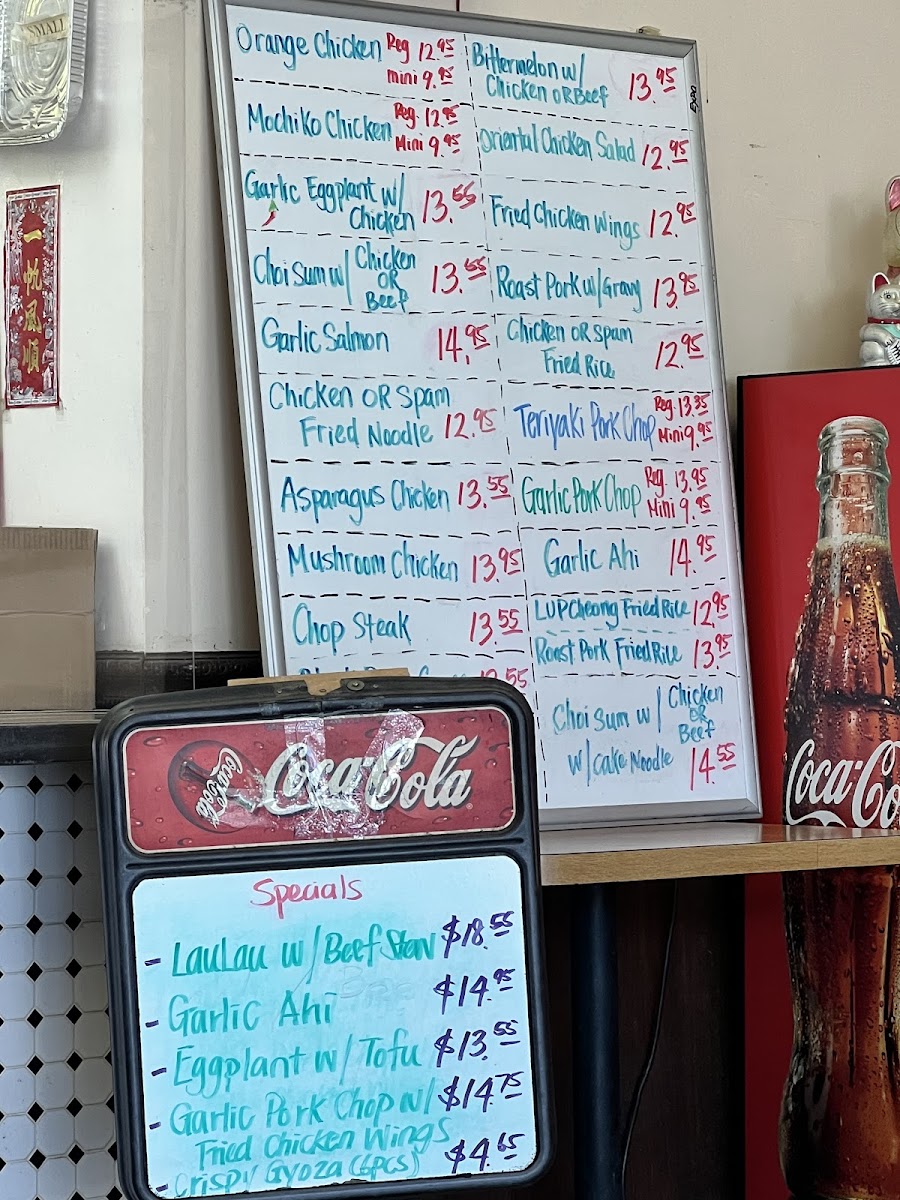 SMALL
一
帆
風
順
Orange Chicken Reg 12.95
mini 9.95
Mochiko Chicken Reg. 12.95
Mini 9.95
Garlic Eggplant w/
Chicken 13.55
Choi Sum w/ Chicken
OR
Beef 13.55
Garlic Salmon 14.95
Chicken OR Spam
Fried Noodle 12.95
Asparagus Chicken 13.55
Mushroom Chicken 13.95
Chop Steak 13.55
Bittermelon w/
Chicken OR Beef 13.95
Oriental Chicken Salad 12.95
Fried Chicken Wings 12.95
Roast Pork w/Gravy 13.95
Chicken OR Spam
Fried Rice 12.95
Teriyaki Pork Chop Reg. 13.35
Mini 9.95
Garlic Pork Chop Reg. 13.95
Mini 9.95
Garlic Ahi 14.95
LUP Cheong Fried Rice 12.95
Roast Pork Fried Rice 13.95
Choi Sum w/ Chicken
OR
Beef
w/cake Noodle 14.55
EXPO
Coca-Cola
Coca-Cola
Specials
- LauLau w/Beef Stew $18.55
- Garlic Ahi $14.95
- Eggplant w/Tofu $13.55
- Garlic Pork Chop w/ $14.75
Fried Chicken Wings
- Crispy Gyoza (6pcs) $4.65
Coca-Co